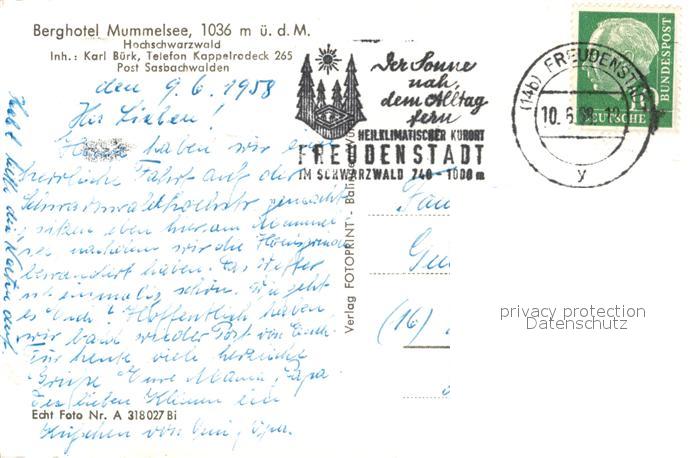 Berghotel Mummelsee, 1036 m ü. d. M.
Hochschwarzwald
Inh.: Karl Bürk, Telefon Kappelrodeck 265
Post Sasbachwalden
den 9.6.1958
Ihr Lieben!
Heute haben wir eine
herrliche Fahrt auf der
Schwarzwaldhochstr. gemacht
sitzen eben hier am Mummel
see nachdem wir die Hornisgrinde
bewandert haben. Das Wetter
ist einmalig schön. Wie geht
es Euch? Hoffentlich haben
wir bald wieder Post von Euch.
Für heute viele herzliche
Grüße Eure Mama, Papa.
Den lieben Kleinen ein
Küßchen von Omi, Opa.
Echt Foto Nr. A 318027 Bi
die Karten auf
Verlag FOTOPRINT - Balingen
Der Sonne
nah,
dem Alltag
fern
HEILKLIMATISCHER KURORT
FREUDENSTADT
IM SCHWARZWALD 740 - 1000 m
(14b) FREUDENSTADT
10.6.58
y
DEUTSCHE
BUNDESPOST
(16)
privacy protection
Datenschutz